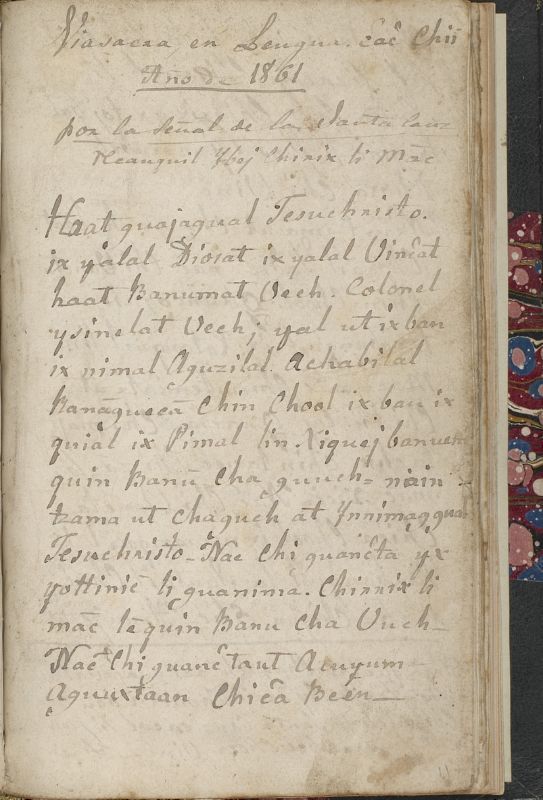 Viasacra en Lengua. Cac Chii
Año de 1861
por la señal de la Santa Cruz
Reauquil Ybej Chirix li Mac
Haat guajagual Jesuchristo.
ix yalal Diosat ix yalal Vincat
haat Banumat Vech. Colonel
ysinelat Vech; yal ut ix ban
ix nimal Aguzilal. Achabilal
Banaguecā Chin Chool ix ban ix
quial ix Pimal lin. Xiquej banuem
quin Banū Cha guuch= nain
tzama ut chaquch at Ynnimag gua
Jesuchristo - Nac Chi guancta yx
yottinic li guanima. Chirrix li
mac le quin Banu Cha Vuch
Nac Chi guanc taut Acuyum
Aguuxtaan Chica Been